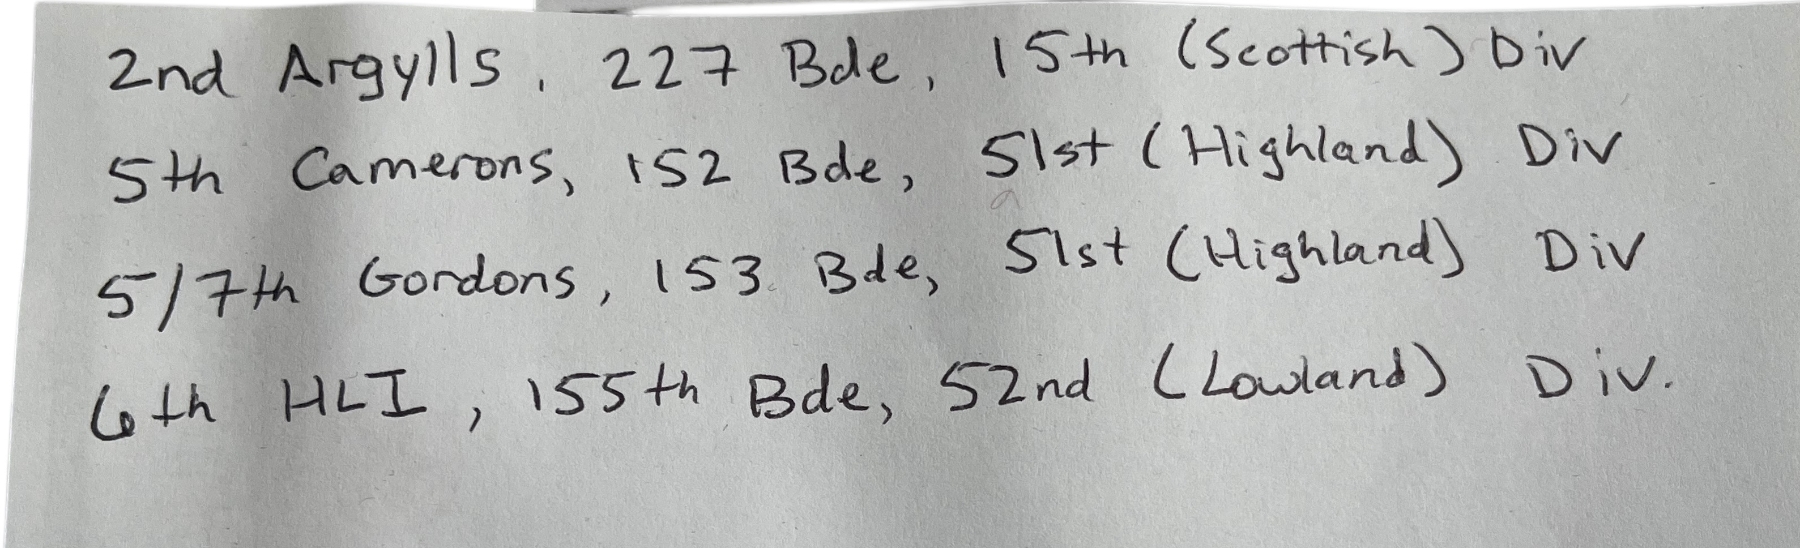 2nd Argylls, 227 Bde, 15th (Scottish) Div
5th Camerons, 152 Bde, 51st (Highland) Div
5/7th Gordons, 153 Bde, 51st (Highland) Div
6th HLI, 155th Bde, 52nd (Lowland) Div.